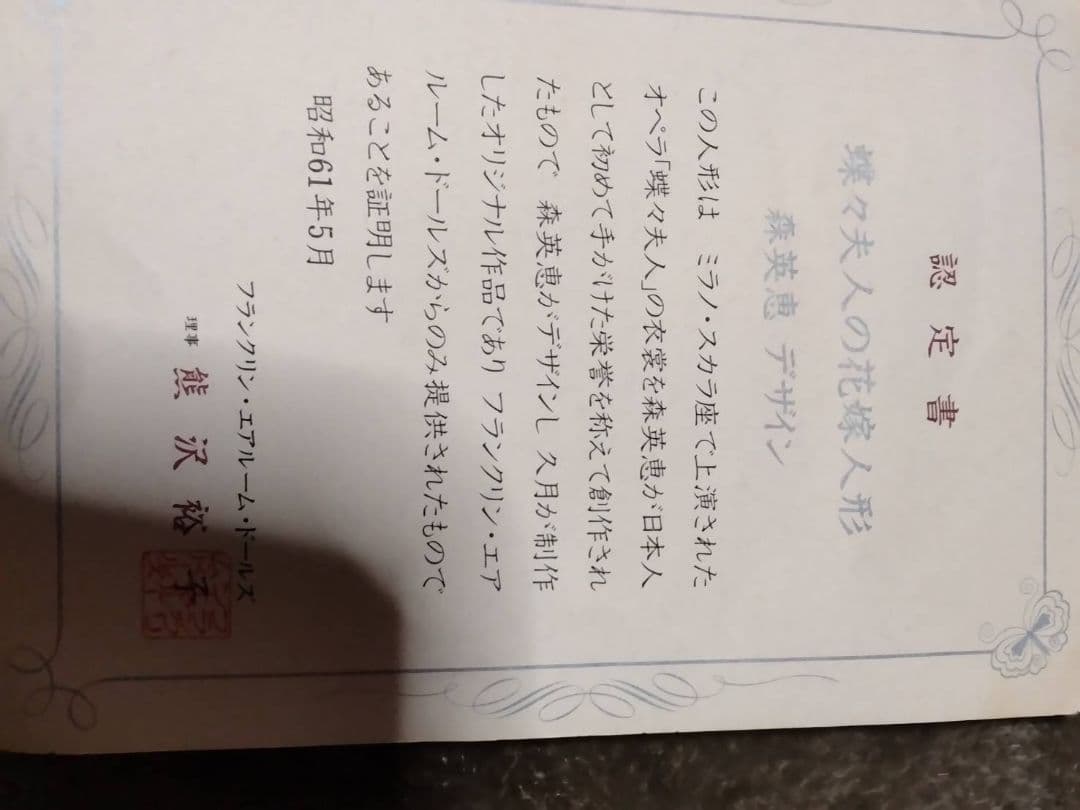 認定書
蝶々夫人の花嫁人形
森英恵 デザイン
この人形は ミラノ・スカラ座で上演された
オペラ「蝶々夫人」の衣裳を森英恵が日本人
として初めて手がけた栄誉を称えて創作され
たもので 森英恵がデザインし 久月が制作
したオリジナル作品であり フランクリン・エア
ルーム・ドールズからのみ提供されたもので
あることを証明します
昭和61年5月
フランクリン・エアルーム・ドールズ
理事 熊沢裕子